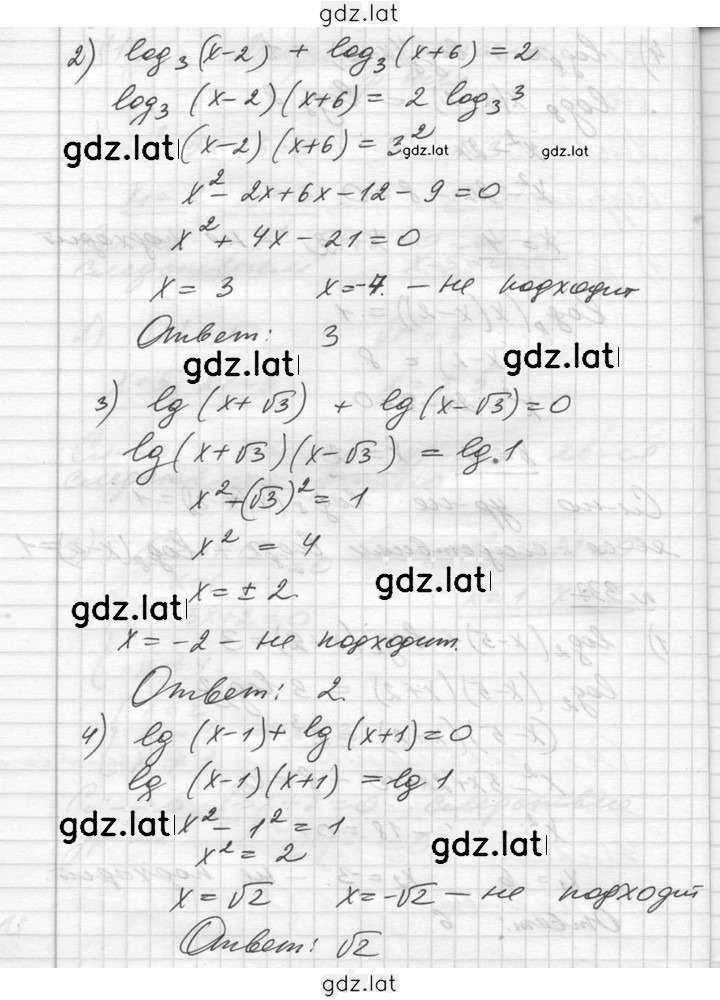 gdz.lat
2) log₃(x-2) + log₃(x+6) = 2
log₃ (x-2)(x+6) = 2 log₃ 3
gdz.lat (x-2)(x+6) = 3² gdz.lat gdz.lat
x² - 2x + 6x - 12 - 9 = 0
x² + 4x - 21 = 0
x = 3 x = -7. — не подходит
Ответ: 3
gdz.lat gdz.lat
3) lg(x+√3) + lg(x-√3) = 0
lg(x+√3)(x-√3) = lg 1
x² - (√3)² = 1
x² = 4
x = ± 2.
gdz.lat gdz.lat
x = -2 — не подходит.
Ответ: 2.
4) lg(x-1) + lg(x+1) = 0
lg (x-1)(x+1) = lg 1
gdz.lat x² - 1² = 1
x² = 2 gdz.lat
x = √2 x = -√2 — не подходит
Ответ: √2
gdz.lat